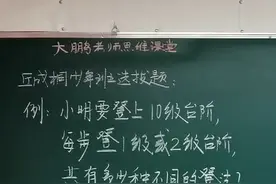 大鹏老师思维课堂
丘成桐少年班选拔题：
例：小明要登上10级台阶，
每步登1级或2级台阶，
共有多少种不同的登法？